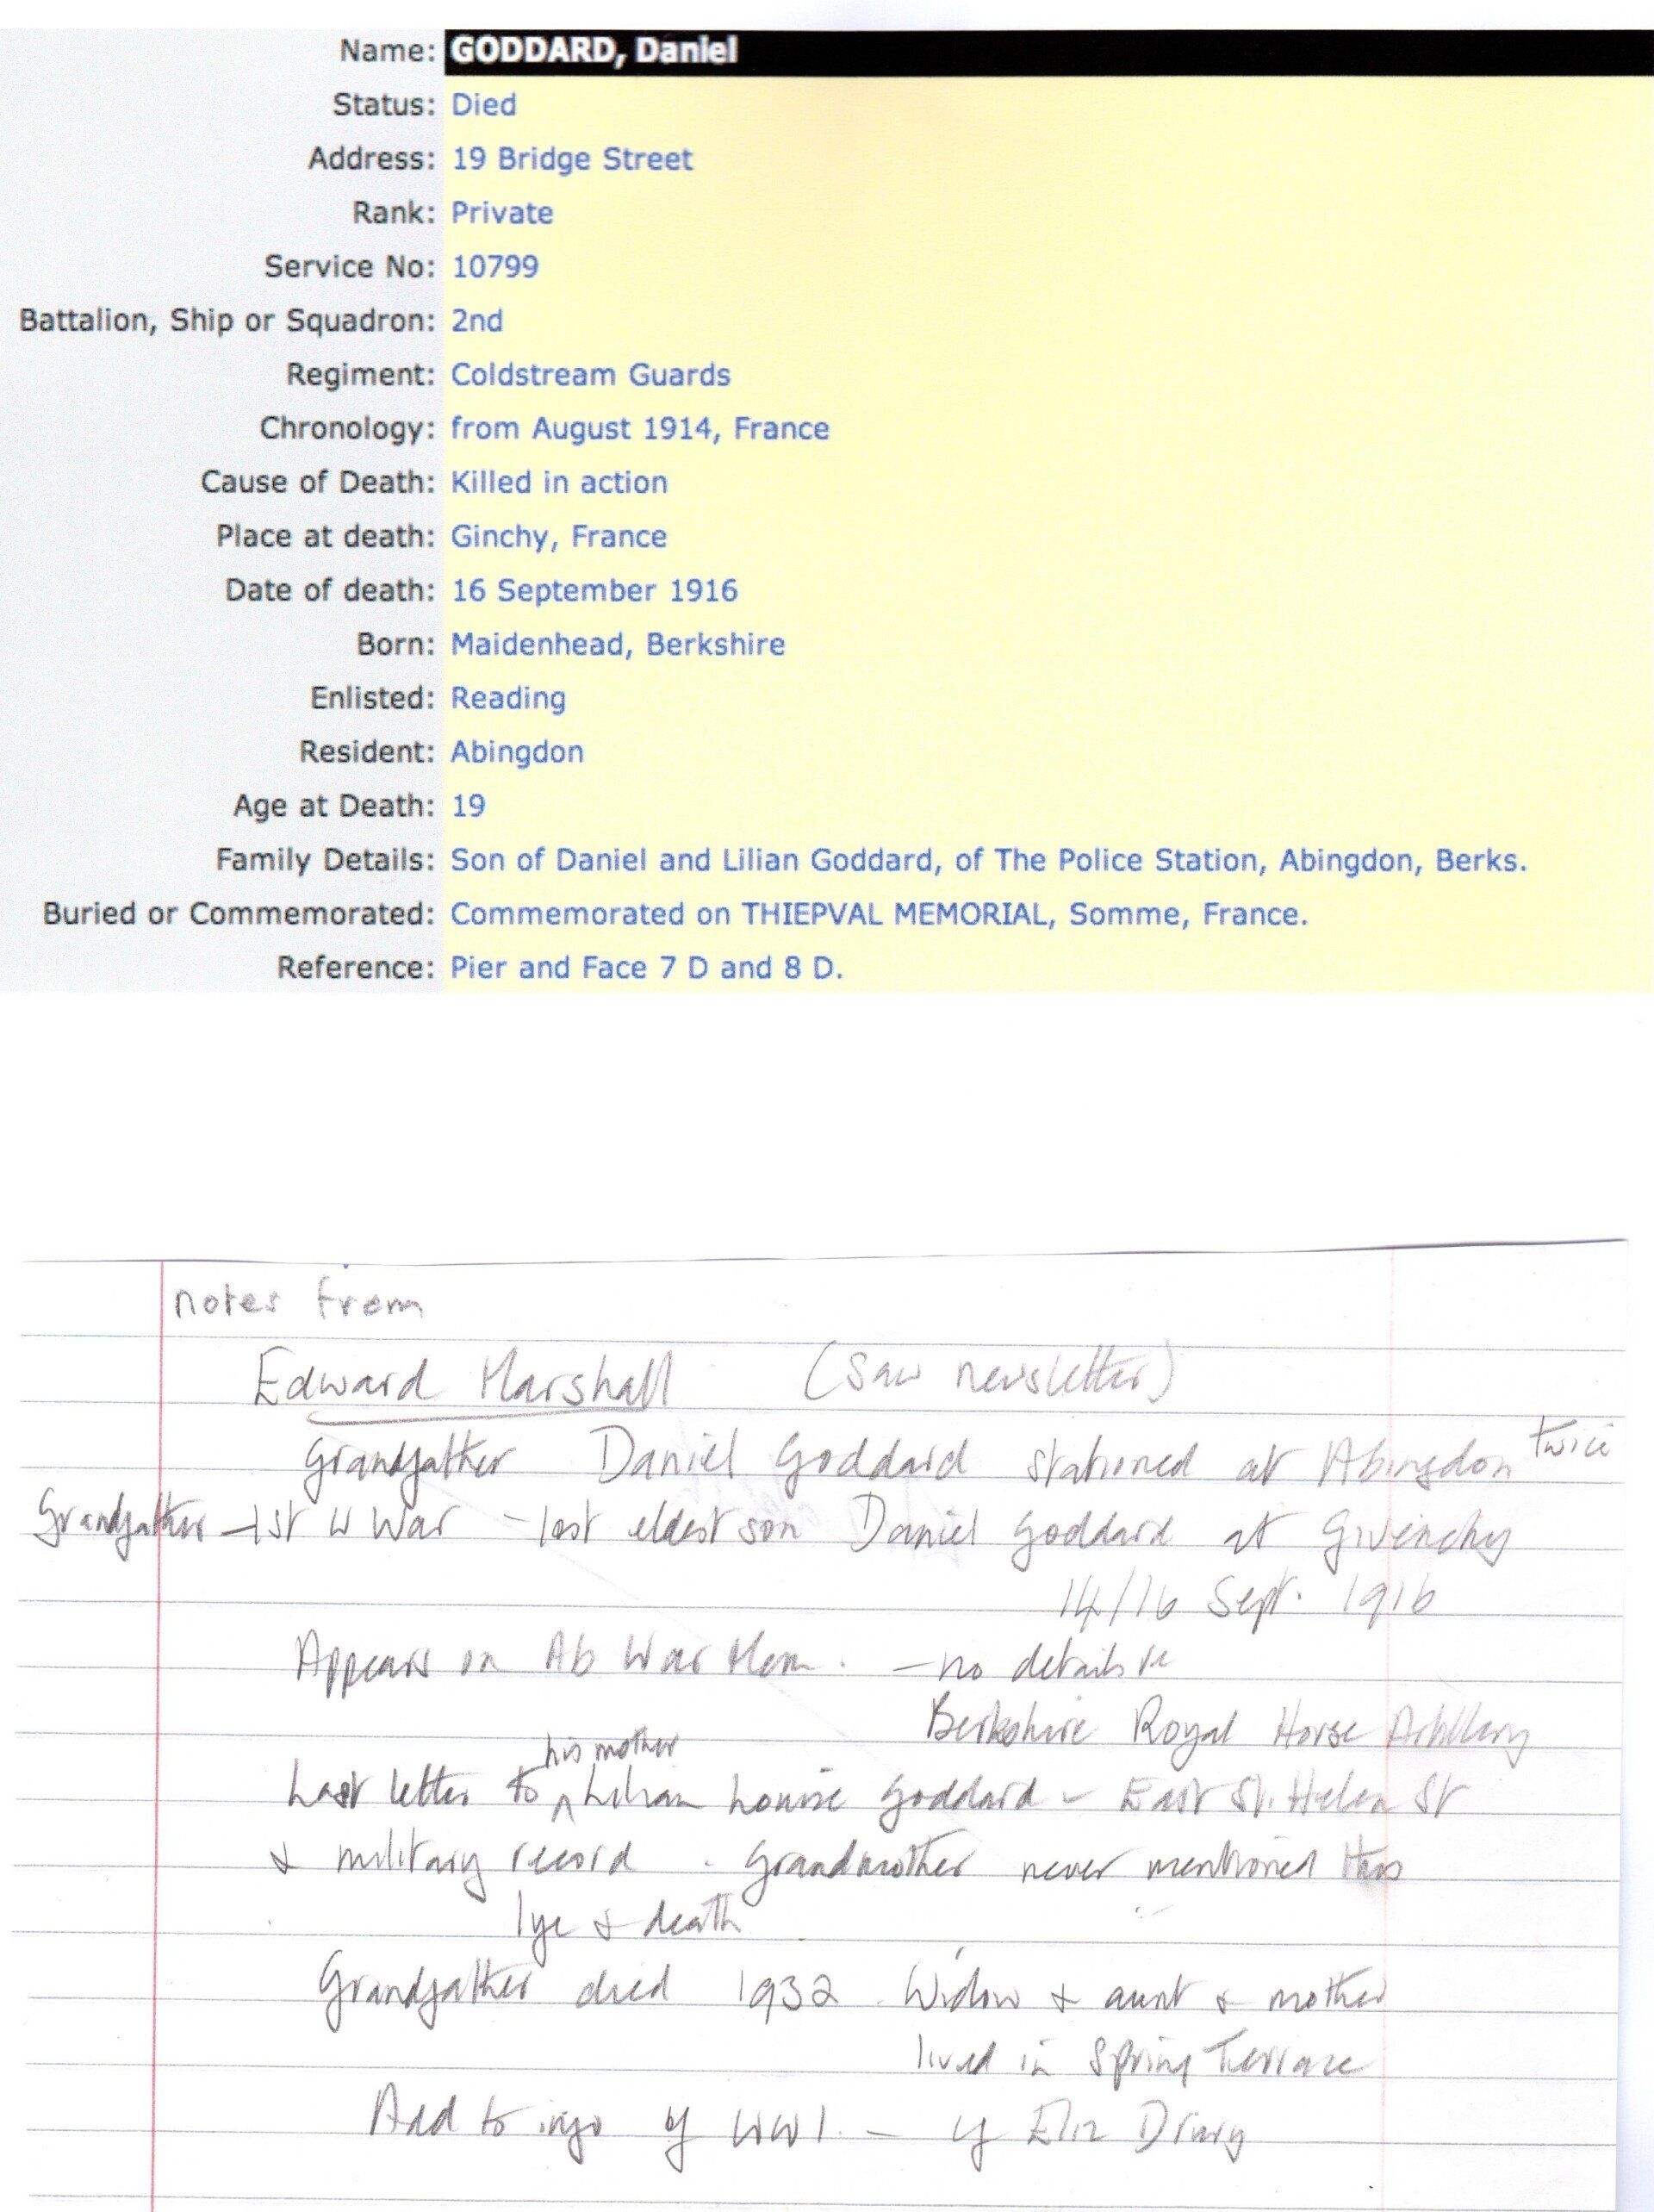 Name: GODDARD, Daniel
Status: Died
Address: 19 Bridge Street
Rank: Private
Service No: 10799
Battalion, Ship or Squadron: 2nd
Regiment: Coldstream Guards
Chronology: from August 1914, France
Cause of Death: Killed in action
Place at death: Ginchy, France
Date of death: 16 September 1916
Born: Maidenhead, Berkshire
Enlisted: Reading
Resident: Abingdon
Age at Death: 19
Family Details: Son of Daniel and Lilian Goddard, of The Police Station, Abingdon, Berks.
Buried or Commemorated: Commemorated on THIEPVAL MEMORIAL, Somme, France.
Reference: Pier and Face 7 D and 8 D.
notes from
Edward Marshall (saw newsletter)
Grandfather Daniel Goddard stationed at Abingdon twice
Grandfather - 1st W War - lost eldest son Daniel Goddard at Givenchy
14/16 Sept. 1916
Appears on Ab War Mem. - no details re
Berkshire Royal Horse Artillery
his mother
Last letter to ^ Lilian Louise Goddard - East St. Helen St
& military record . Grandmother never mentioned this
life & death
Grandfather died 1932 . Widow & aunt & mother
lived in Spring Terrace
Add to info of WW1. - cf Eliz Drury